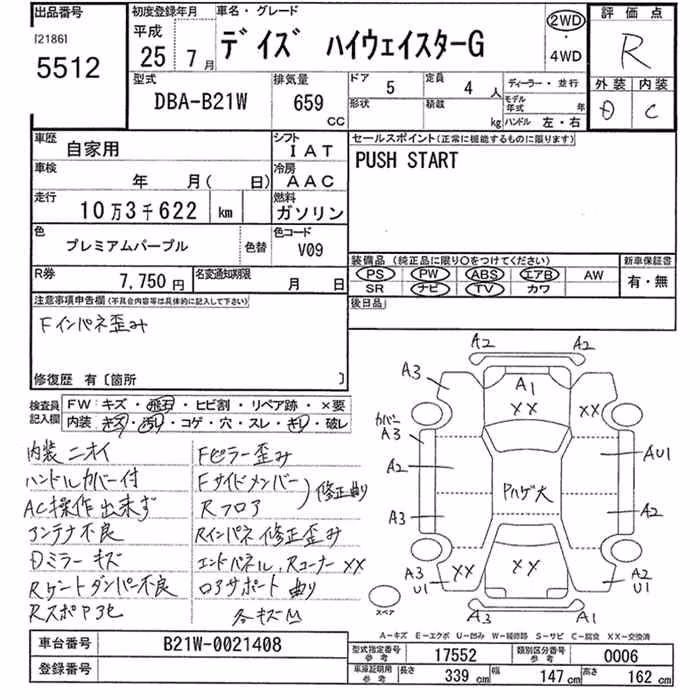 出品番号 初度登録年月 車名・グレード 評価点
[2186] 平成 デイズ ハイウェイスターG 2WD R
5512 25年 7月 ・4WD
型式 排気量 ドア 定員 ディーラー・並行 外装 内装
DBA-B21W 659 CC 5 4人 形状 積載 kg モデル年式 年 C
ハンドル 左・右
車歴 自家用 シフト IAT セールスポイント(正常に機能するものに限ります)
車検 年 月( 日) 冷房 AAC PUSH START
走行 10万3千622 km 燃料 ガソリン
色 プレミアムパープル 色替 色コード V09
装備品(純正品に限り○をつけてください) 新車保証書
R券 7,750円 名変通知期限 月 日 PS PW ABS エアB AW 有・無
SR ナビ TV カワ
注意事項申告欄(不具合内容等は具体的に記入して下さい) 後日品
Fインパネ歪み
修復歴 有〔箇所 〕
検査員記入欄 FW:キズ・飛石・ヒビ割・リペア跡・×要
内装:キズ・汚レ・コゲ・穴・スレ・キレ・破レ
内装ニオイ Fピラー歪み
ハンドルカバー付 Fサイドメンバー
AC操作出来ず Rフロア 修正曲り
アンテナ不良 Rインパネ修正歪み
Dミラーキズ エンドパネル、Rコーナー××
Rゲートダンパー不良 ロアサポート曲り
各キズM
A2
A2
A3 A1
×× ××
カバー
A3
A2 AU1
Pハゲ大
A3 A2
A3 U1 ×× ×× A2 U1
スペア A3 A1
A-キズ E-エクボ U-凹み W-補修跡 S-サビ C-腐食 XX-交換済
車台番号 B21W-0021408 型式指定番号 参考 17552 類別区分番号 参考 0006
登録番号 車庫証明用 参考 長さ 339cm 幅 147cm 高さ 162cm